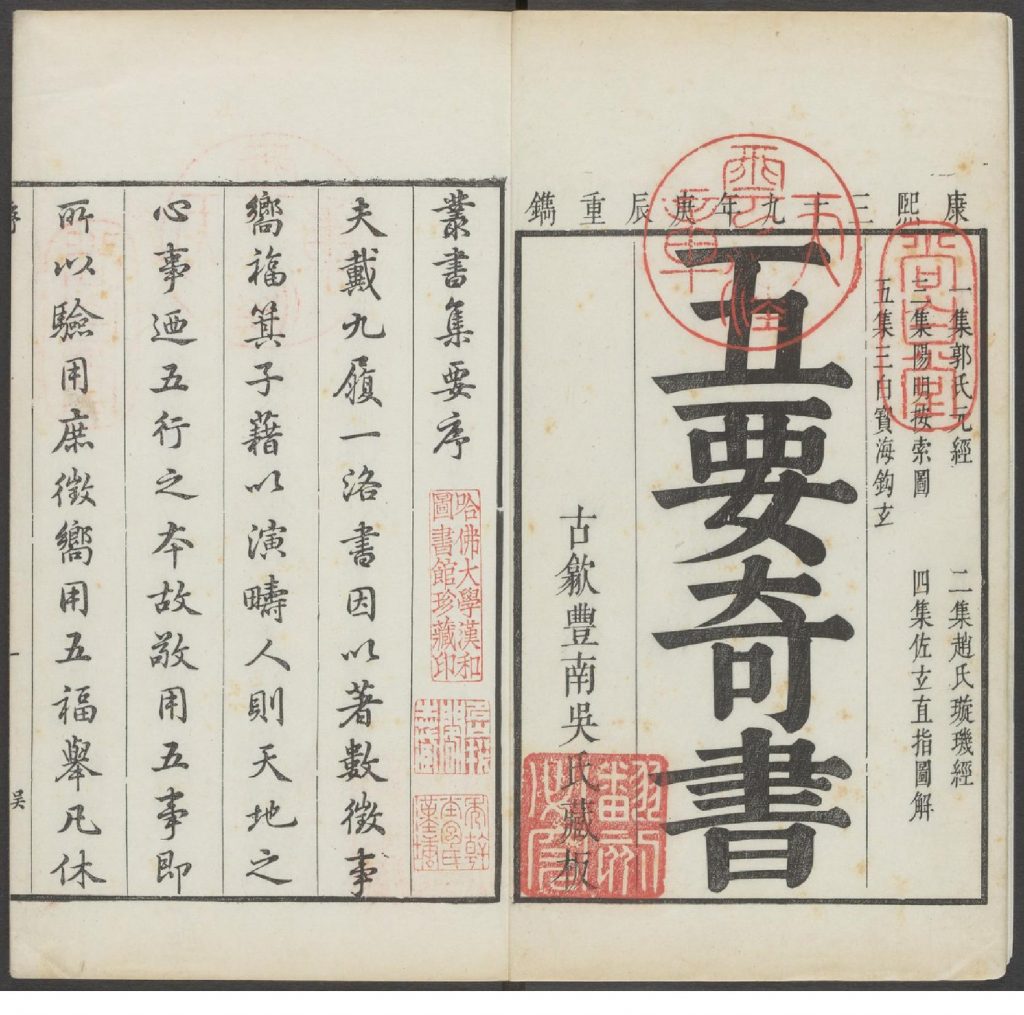 康熙三十九年庚辰重鐫
一集郭氏元經　二集趙氏璇璣經
三集陽明按索圖　四集佐玄直指圖解
五集三白寶海鈎玄
五要奇書
古歙豐南吳氏藏板
翻刻必究
叢書集要序
哈佛大學漢和
圖書館珍藏印
夫戴九履一洛書因以著數徵事
嚮福箕子藉以演疇人則天地之
心事迺五行之本故敬用五事即
所以驗用庶徵嚮用五福舉凡休
序
一
吳